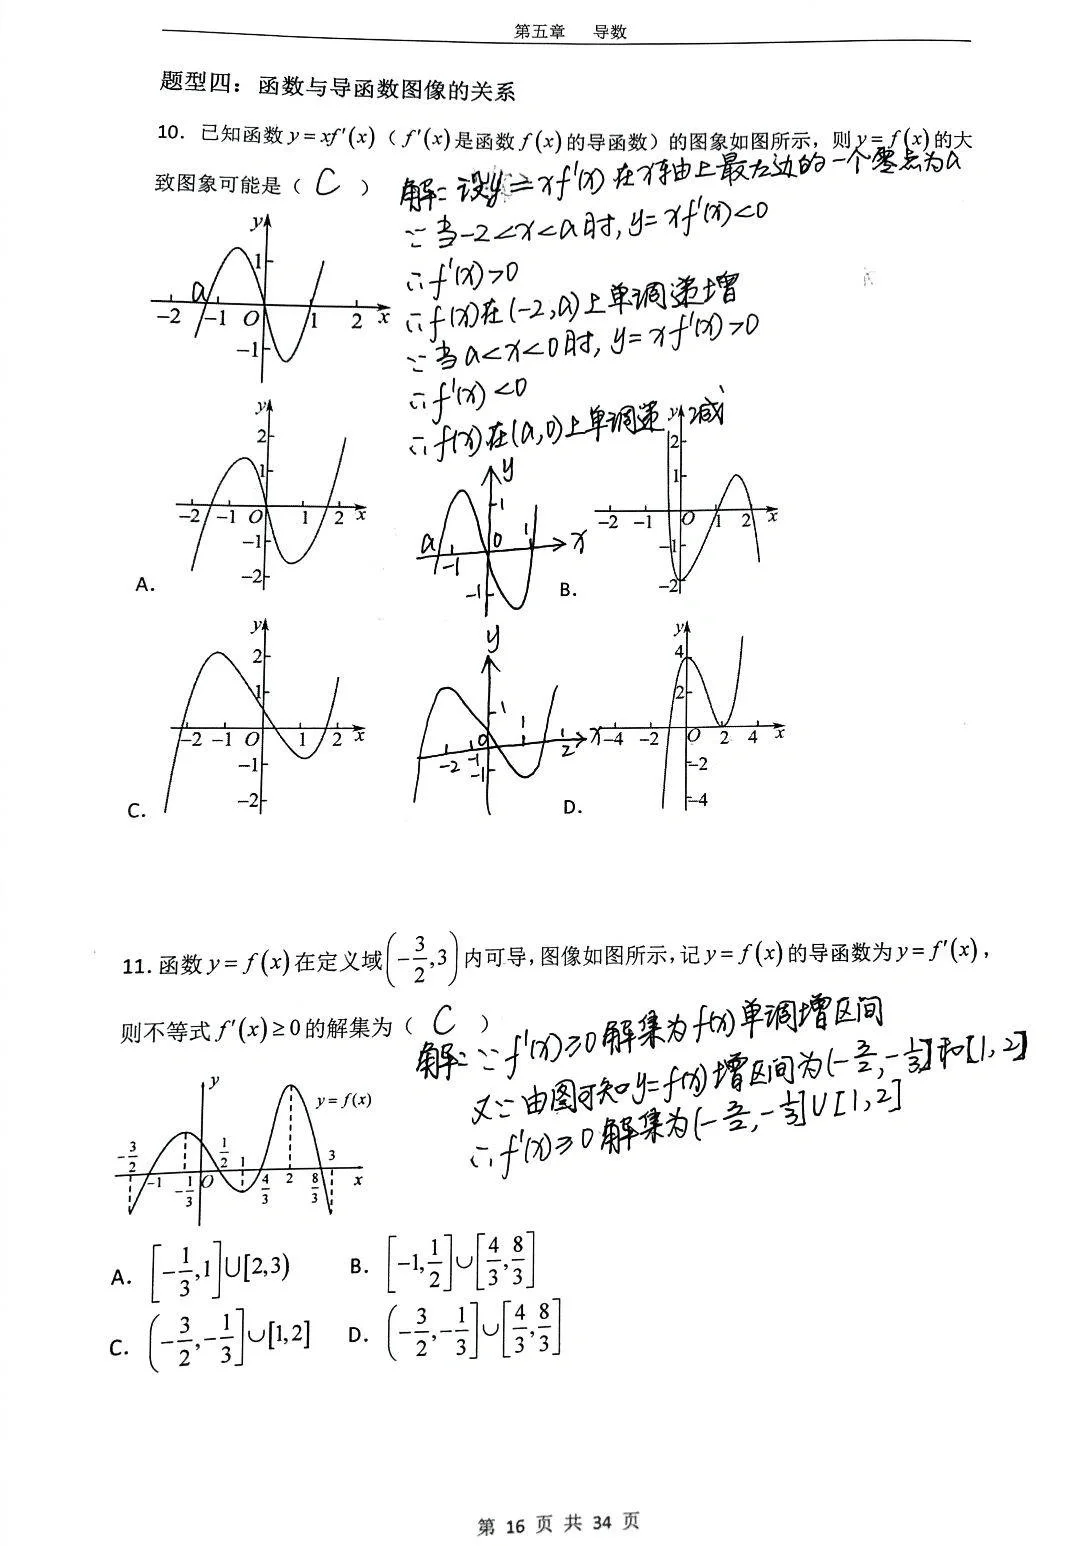 第五章 导数
题型四：函数与导函数图像的关系
10．已知函数 y = xf′(x)（ f′(x)是函数 f(x)的导函数）的图象如图所示，则 y = f(x)的大
致图象可能是（ C ）
解：设y = xf′(x) 在x轴上最左边的一个零点为a
∵当-2<x<a时, y=xf′(x)<0
∴f′(x)>0
∴f(x)在(-2,a)上单调递增
∵当a<x<0时, y=xf′(x)>0
∴f′(x)<0
∴f(x)在(a,0)上单调递减
y
1
a
-2 -1 O 1 2 x
-1
y
2
1
-2 -1 O 1 2 x
-1
-2
A．
y
1
a -1 0 1 x
-1
y
2
1
-2 -1 O 1 2 x
-1
-2
B．
y
2
1
-2 -1 O 1 2 x
-1
-2
C．
y
1
1
-2 -1 0 2 x
-1
y
4
2
-4 -2 O 2 4 x
-2
-4
D．
11. 函数 y = f(x)在定义域(-3/2,3)内可导, 图像如图所示, 记 y = f(x)的导函数为 y = f′(x)，
则不等式 f′(x)≥0的解集为（ C ）
解：∵f′(x)≥0解集为f(x)单调增区间
又∵由图可知y=f(x)增区间为(-3/2,-1/3]和[1,2]
∴f′(x)≥0解集为(-3/2,-1/3]∪[1,2]
y
y = f(x)
-3/2 -1 -1/3 O 1/2 1 4/3 2 8/3 3 x
A． [-1/3,1]∪[2,3) B． [-1,1/2]∪[4/3,8/3]
C． (-3/2,-1/3]∪[1,2] D． (-3/2,-1/3]∪[4/3,8/3]
第 16 页 共 34 页